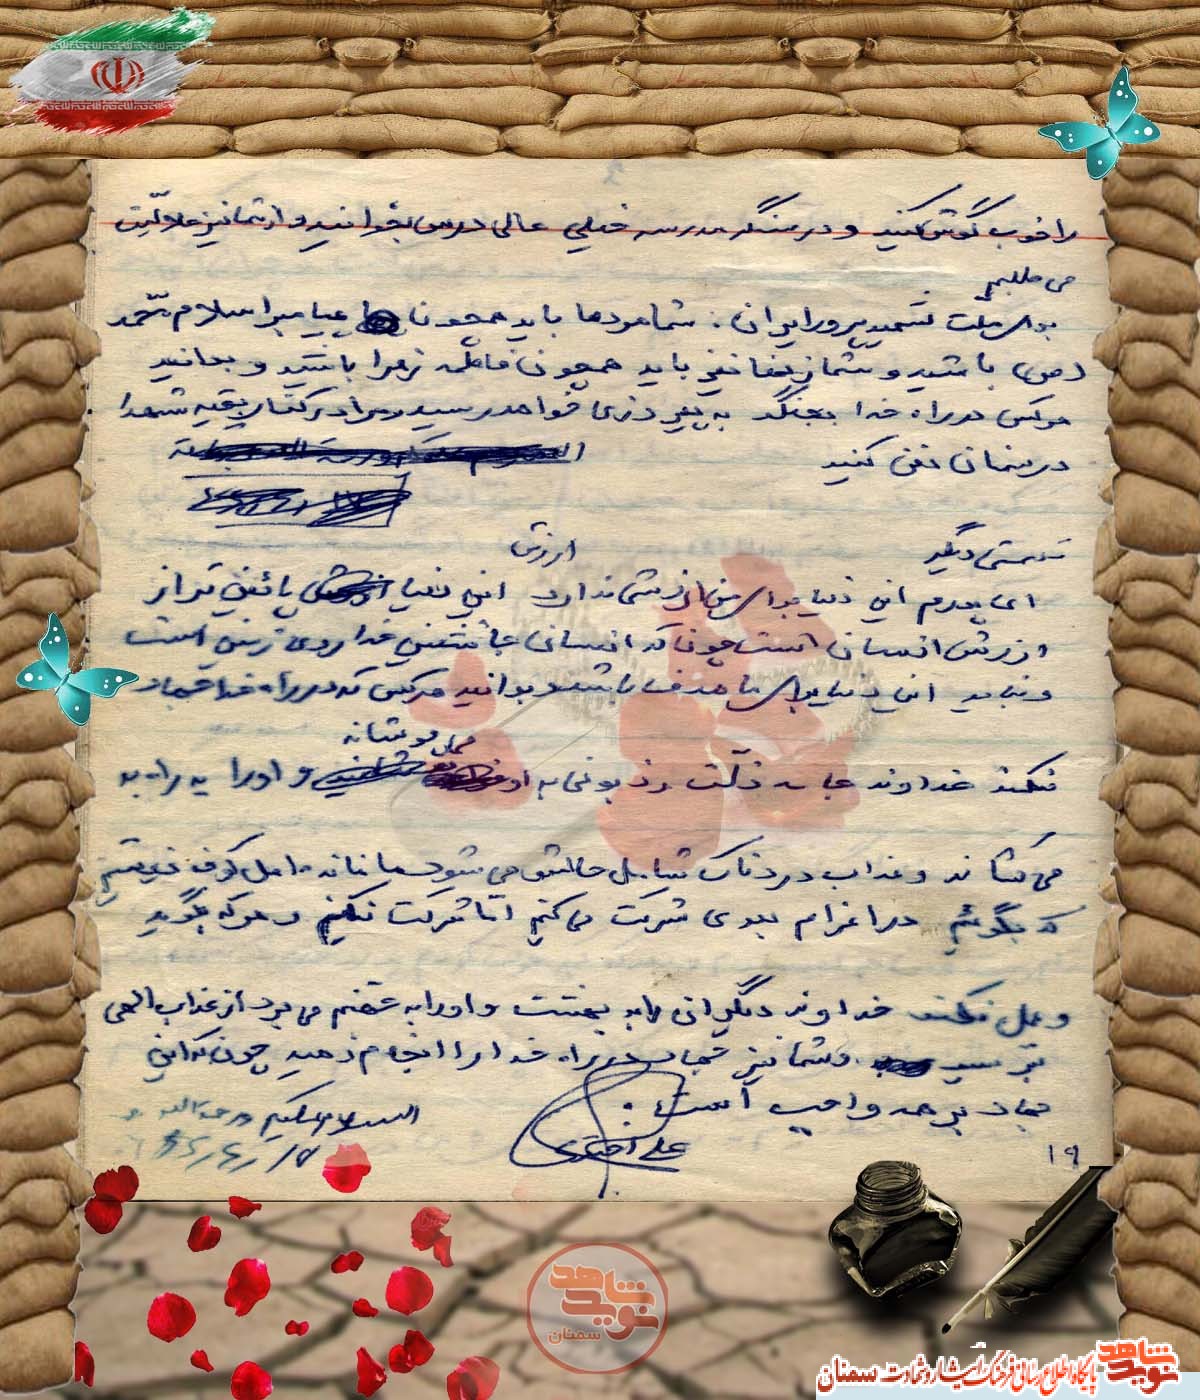 را خوب گوش کنید و در سنگر مدرسه خیلی عالی درس بخوانید و از شما نیز حلالیت
می طلبم
برای ملت شهید پرور ایران: شما مردها باید همچون پیامبر اسلام محمد
(ص) باشید و شما زنها نیز باید همچون فاطمه زهرا باشید و بدانید
هرکس در راه خدا بجنگد به پیروزی خواهد رسید و مرا در کنار بقیه شهدا
در سمنان دفن کنید
قسمتی دیگر
ارزش
ای پدرم این دنیا برای من ارزشی ندارد این دنیا پائین تر از
ارزش انسان است چون که انسان جانشین خدا روی زمین است
و نباید این دنیا برای ما هدف باشد و بدانید هرکس که در راه خدا جهاد
موشانه
نکند خداوند جامه ذلت و زبونی به او و او را به راه به
می کشاند و عذاب دردناک شامل حالش می شود ما مانند اهل کوفه نیستیم
که بگوئیم در اعزام بعدی شرکت می کنم اما شرکت نکنیم و هرکه بگوید
و عمل نکند خداوند دیگران را به بهشت و او را به جهنم می برد از عذاب الهی
بترسید و شما نیز جهاد در راه خدا را انجام دهید چون که این
جهاد بر همه واجب است.
السلام علیکم و رحمة الله و
علی اختری
۱۹
شاهد
نوید
سمنان
نوید شاهد
پایگاه اطلاع رسانی فرهنگ ایثار و شهادت سمنان